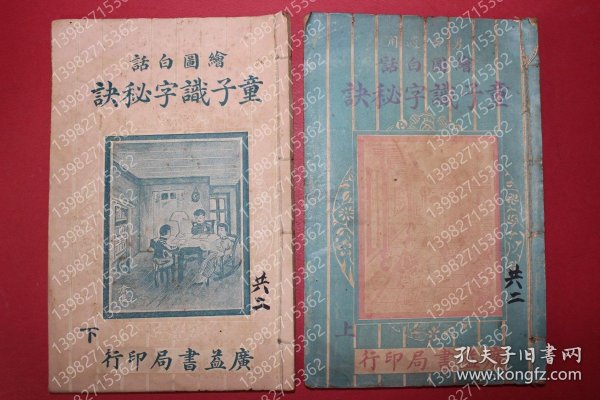 繪圖白話
童子識字秘訣
共二
下
廣益書局印行
用
繪圖白話
童子識字秘訣
共二
上
書局印行
孔夫子旧书网
www.kongfz.com
13982715362